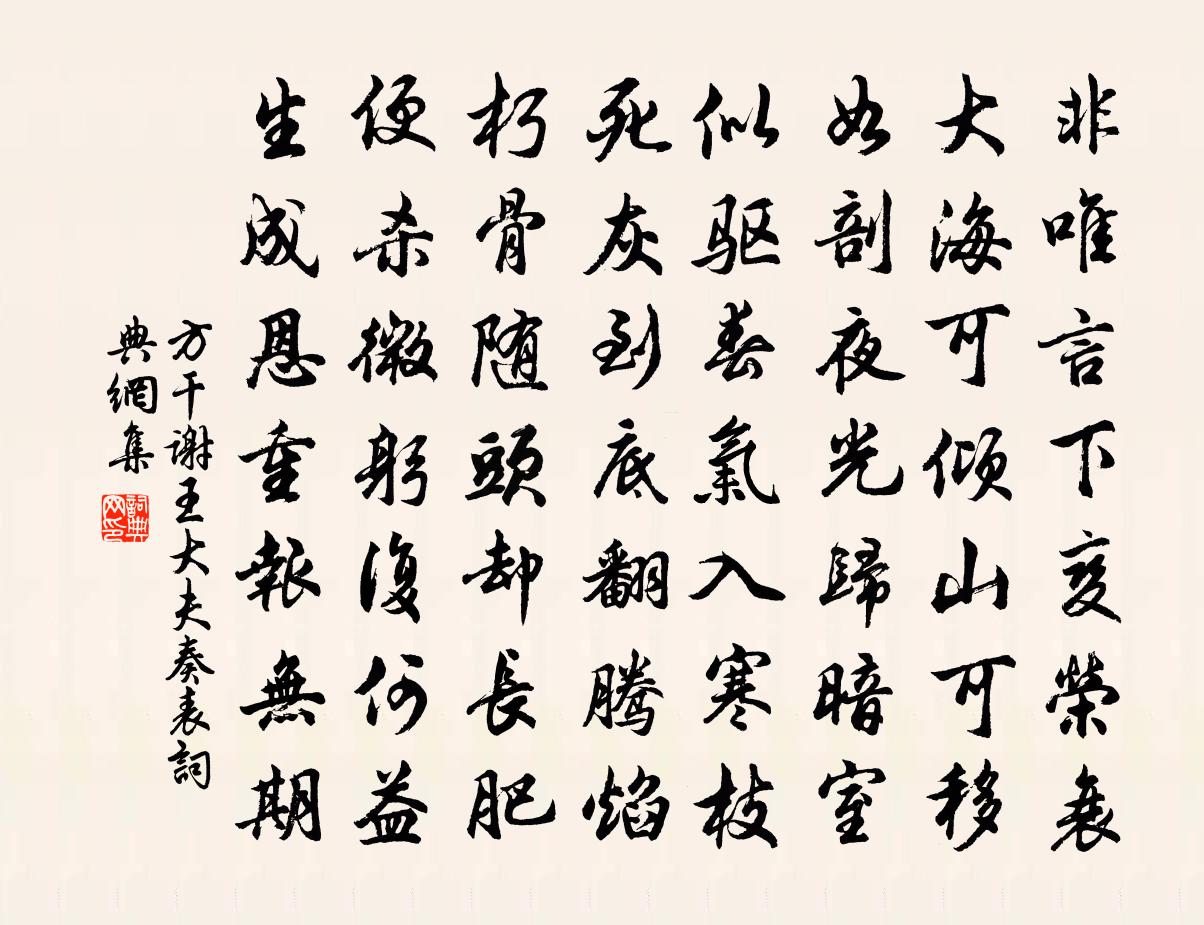 非唯言下变榮衰
大海可倾山可移
如剖夜光歸暗室
似驱春氣入寒枝
死灰到底翻腾焰
朽骨随頭却長肥
便杀微躬復何益
生成恩重報無期
方干谢王大夫奏表詞
典網集
詞典網印